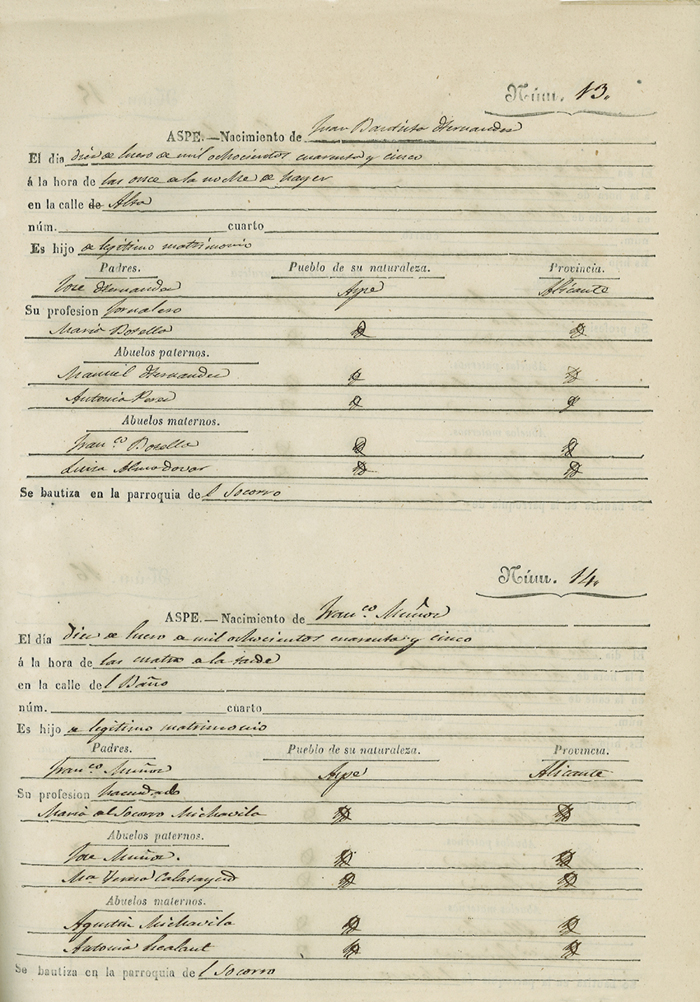 Núm. 13.
ASPE.—Nacimiento de Juan Bautista Hernandez
El día diez de Enero de mil ochocientos cuarenta y cinco
á la hora de las once de la noche de hayer
en la calle de Alta
núm. cuarto
Es hijo de legitimo matrimonio
Padres. Pueblo de su naturaleza. Provincia.
Jose Hernandez Aspe Alicante
Su profesion Jornalero
Maria Botella
Abuelos paternos.
Manuel Hernandez
Antonia Perez
Abuelos maternos.
Fran.co Botella
Luisa Almodovar
Se bautiza en la parroquia de l Socorro
Núm. 14.
ASPE.—Nacimiento de Fran.co Muñoz
El día diez de Enero de mil ochocientos cuarenta y cinco
á la hora de las cuatro de la tarde
en la calle de l Baño
núm. cuarto
Es hijo de legitimo matrimonio
Padres. Pueblo de su naturaleza. Provincia.
Fran.co Muñoz Aspe Alicante
Su profesion hacendado
Maria del Socorro Michavila
Abuelos paternos.
Jose Muñoz.
Ma Teresa Calatayud
Abuelos maternos.
Agustin Michavila
Antonia
Se bautiza en la parroquia de l Socorro